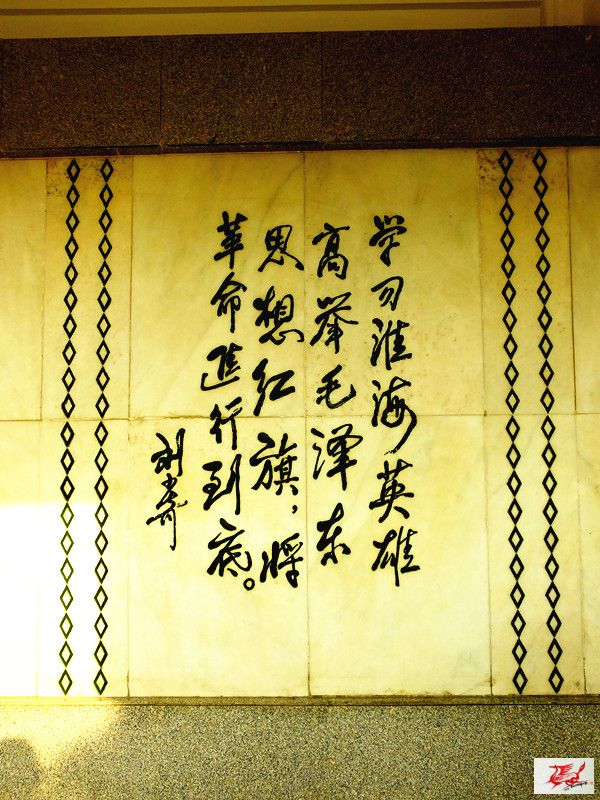 学习淮海英雄
高举毛泽东
思想红旗，将
革命進行到底。
刘少奇